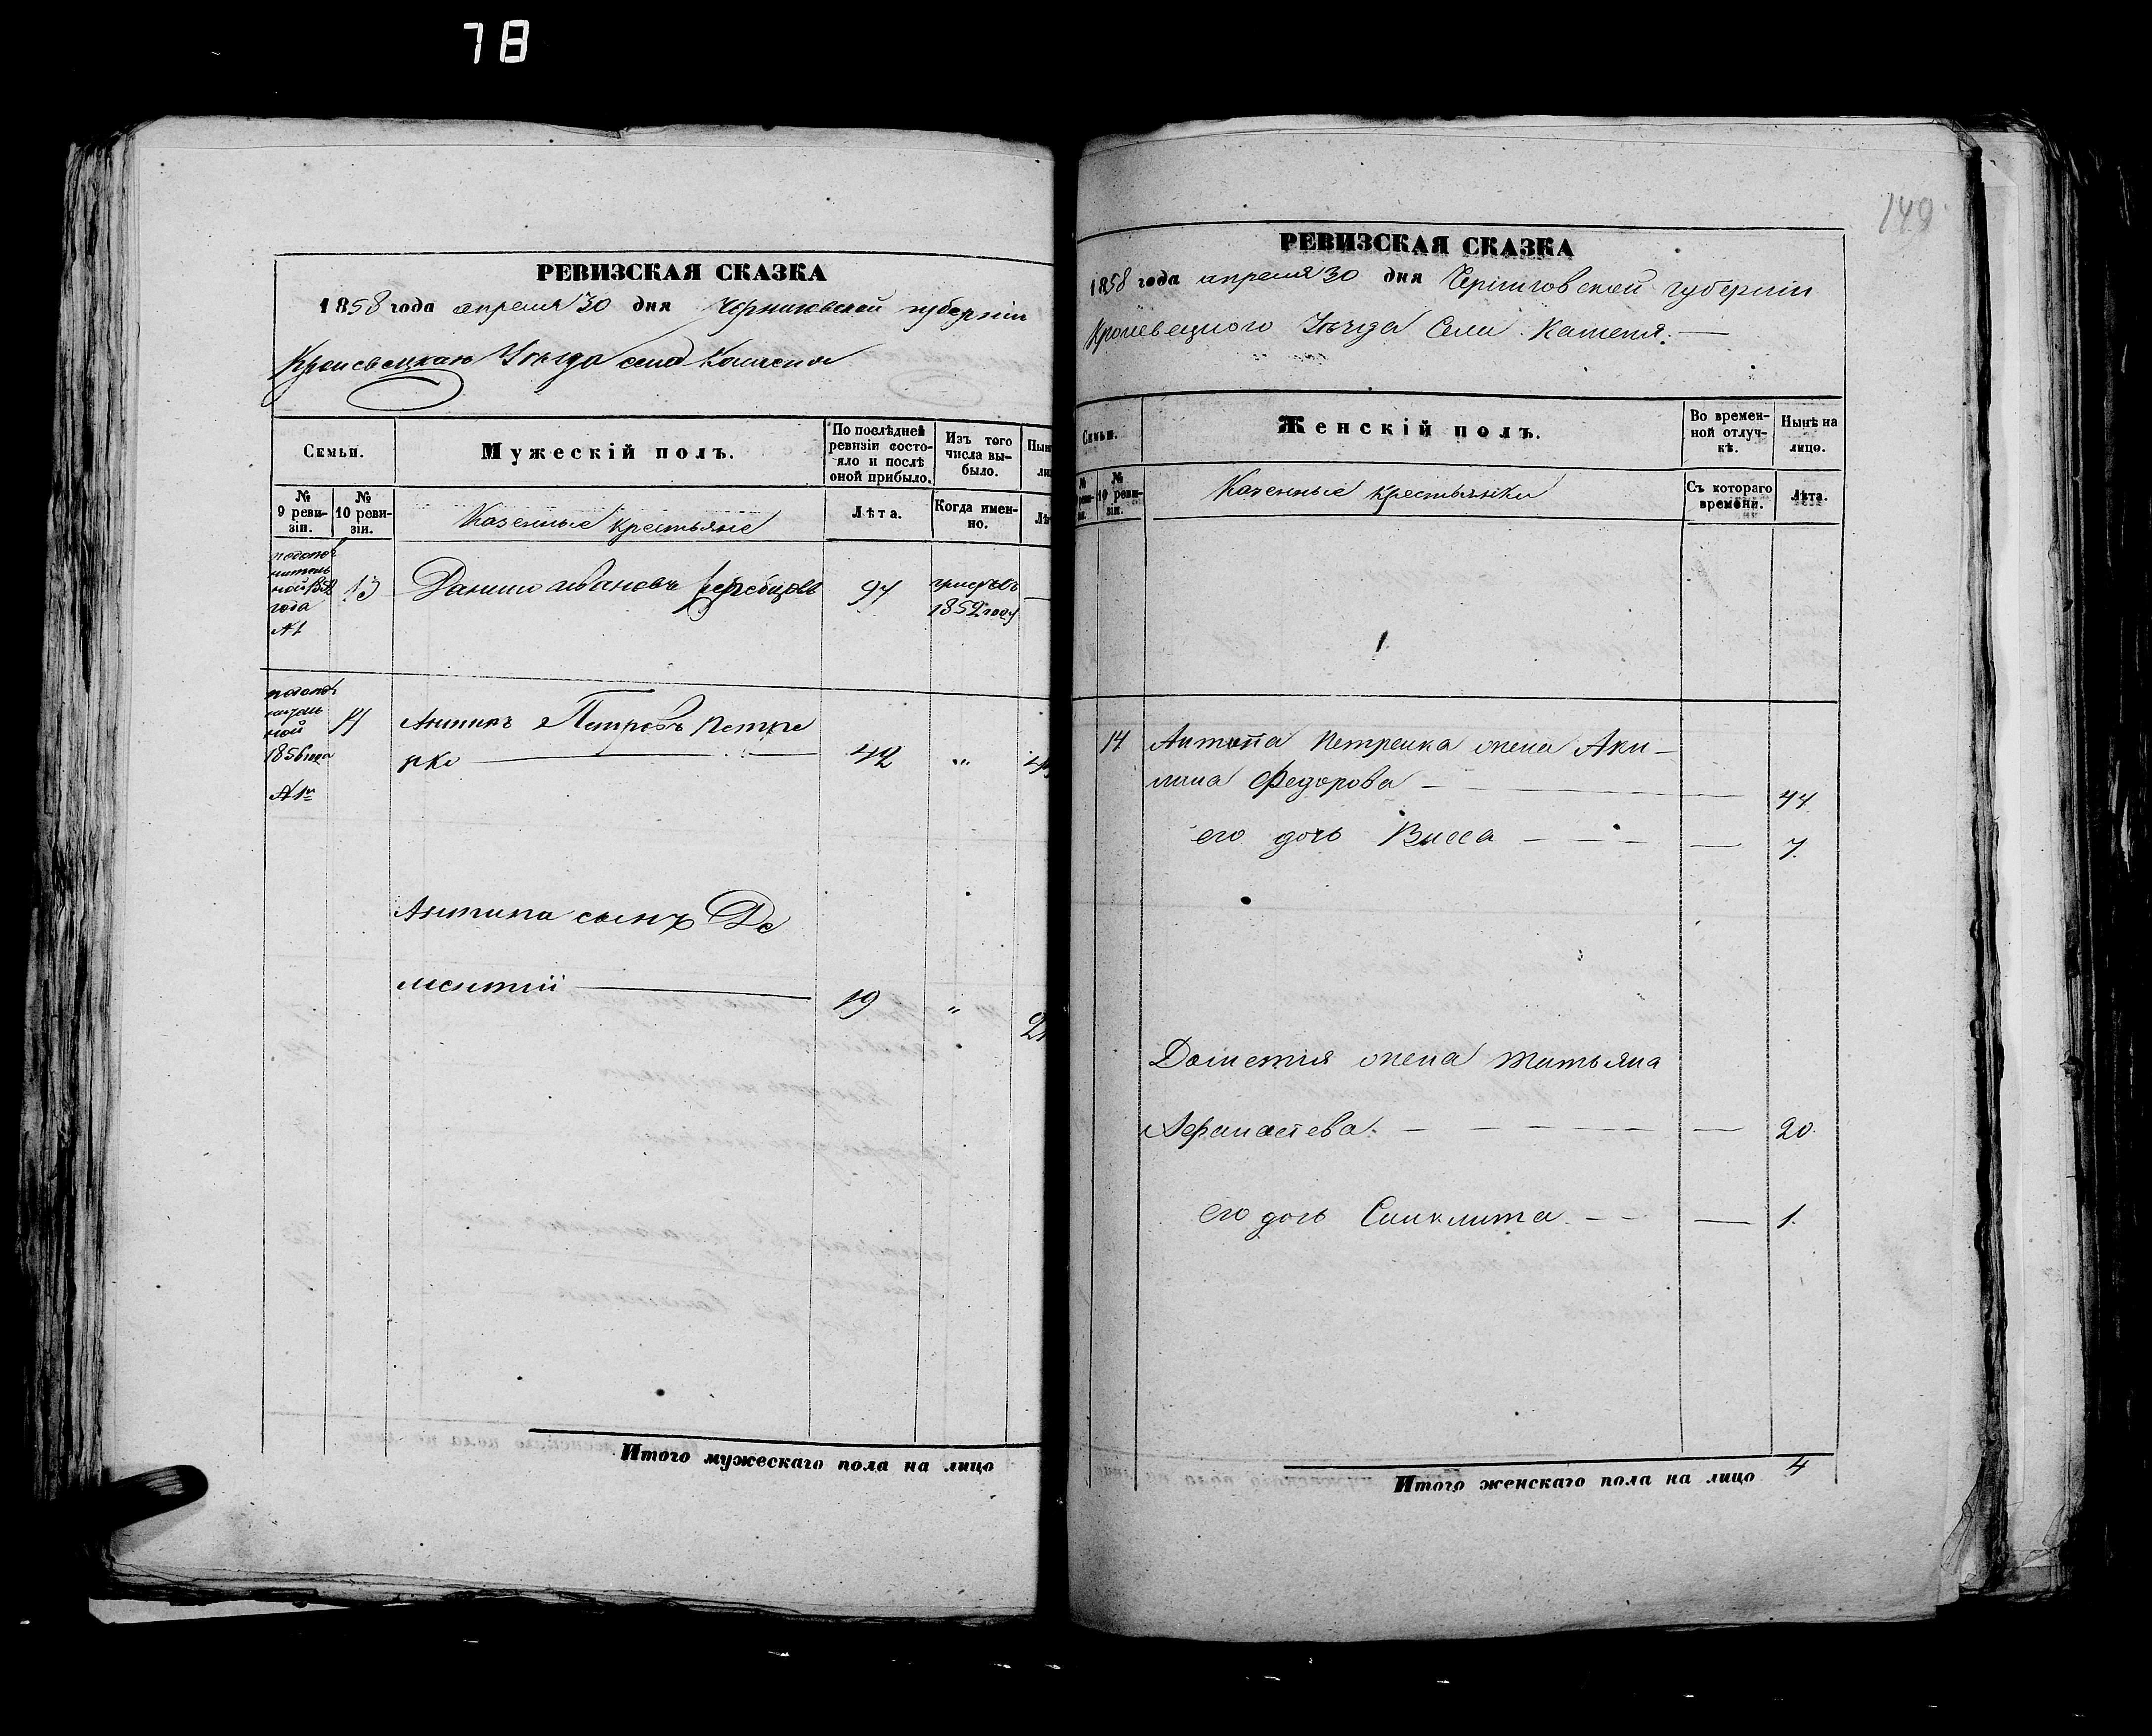 78
РЕВИЗСКАЯ СКАЗКА
1858 года апреля 30 дня Черниговской губернии
Кролевецкаго Уѣзда села Каменя
Семьи.
Мужескій полъ.
По послѣдней ревизіи состояло и послѣ оной прибыло.
Изъ того числа выбыло.
№ 9 ревизіи.
№ 10 ревизіи.
Казенные крестьяне
Лѣта.
Когда именно.
ной 1852
года
№ 1
13
Данило Ивановъ
94
1852 году
ной
1856 года
14
Антипъ Петровъ Петре
нко
42
"
Антипа сынъ До
ментій
19
"
Итого мужескаго пола на лицо
149
РЕВИЗСКАЯ СКАЗКА
1858 года апреля 30 дня Черниговской губернии
Кролевецкого Уѣзда Села Каменя.
Семьи.
Женскій полъ.
Во временной отлучкѣ.
Нынѣ на лицо.
10 ревизіи.
Казенные крестьянки
Съ котораго времени.
Лѣта.
14
Антипа Петренка жена Аку-
лина Федорова
44
его дочь Васса
7
Дометия жена Татьяна
Афанасиева
20
его дочь Синклита
1
Итого женскаго пола на лицо 4